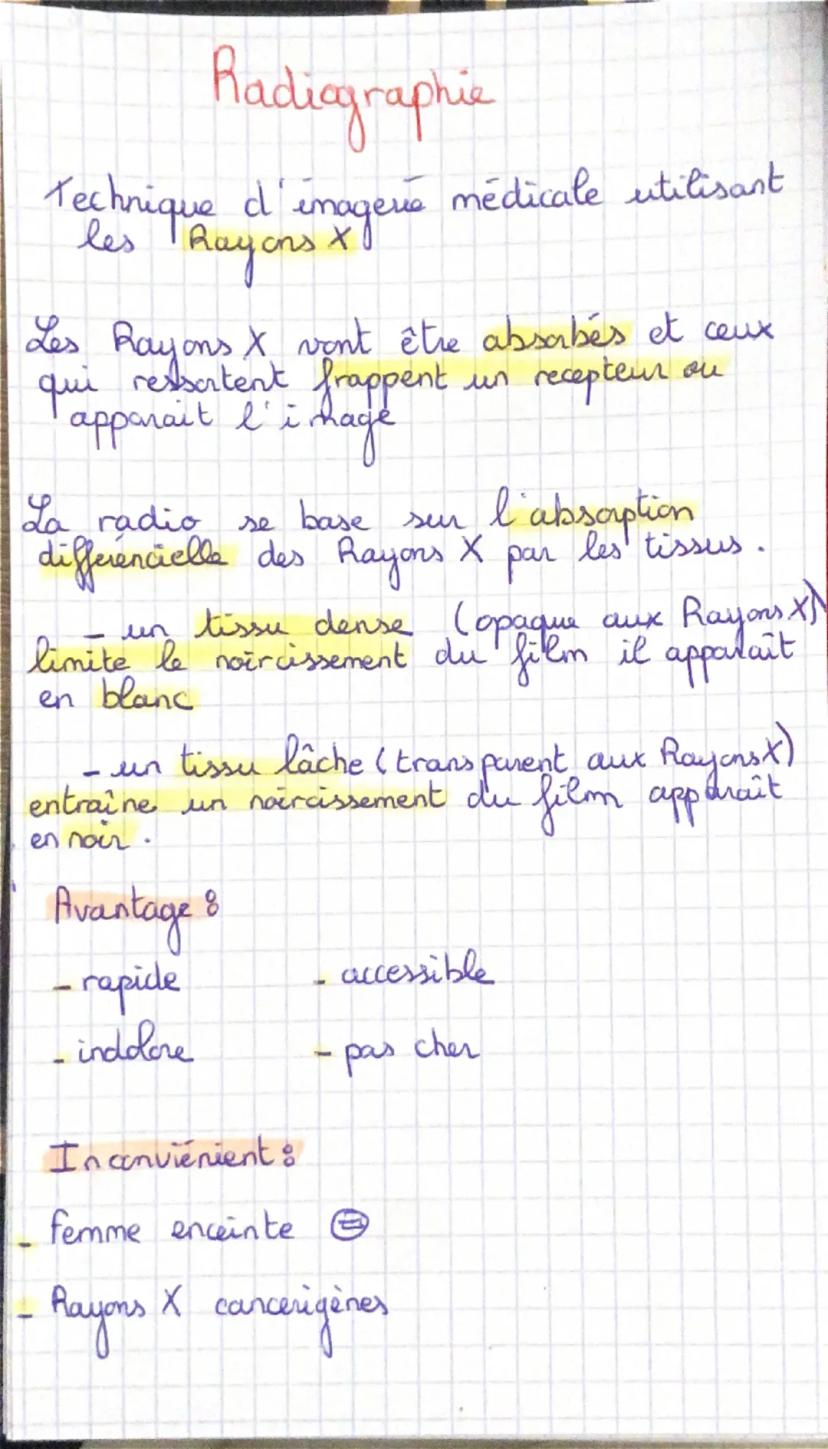 Radiographie
Technique d'imagerie médicale utilisant
les Rayons X
Les Rayons X vont être absorbés et ceux
qui ressortent frappent un recepteur ou
apparait l'image
La radio se base sur l'absorption
différencielle des Rayons X par les tissus.
- un tissu dense (opaque aux Rayons X)
limite le noircissement du film il apparaît
en blanc
- un tissu lâche (transparent aux Rayons X)
entraîne un noircissement du film apparaît
en noir.
Avantage :
- rapide - accessible
- indolore - pas cher
Inconviénient :
- femme enceinte ⊜
- Rayons X cancerigènes